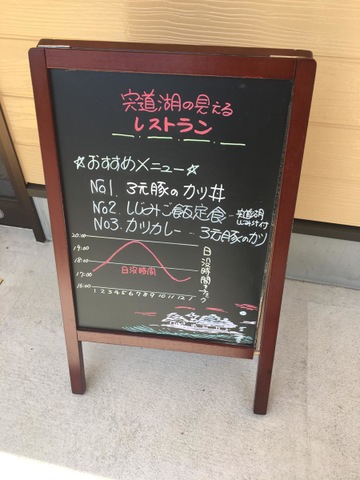 宍道湖の見える
レストラン
☆おすすめメニュー☆
No1. 3元豚のカツ丼
No2. しじみご飯定食-宍道湖しじみ汁付
No3. カツカレー-3元豚のカツ
20:00
19:00
18:00
17:00
16:00
日没時間
1 2 3 4 5 6 7 8 9 10 11 12 1